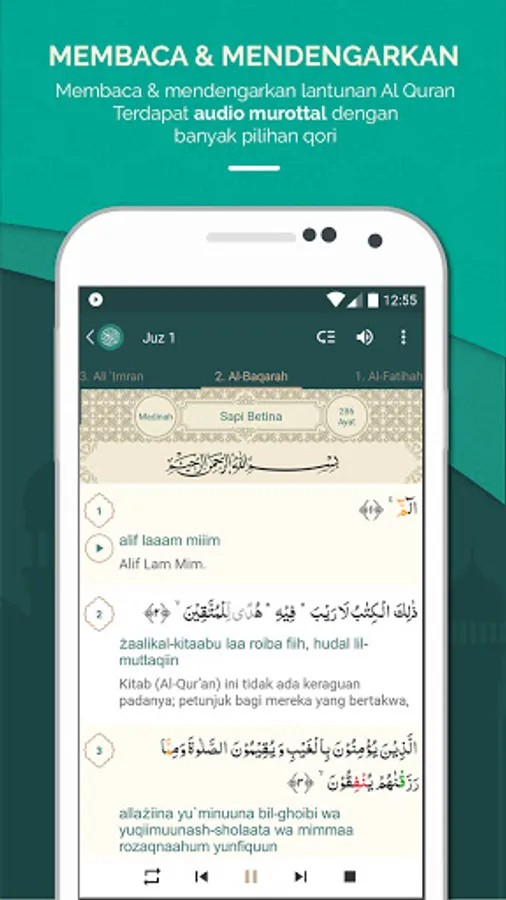 MEMBACA & MENDENGARKAN
Membaca & mendengarkan lantunan Al Quran
Terdapat audio murottal dengan
banyak pilihan qori
12:55
Juz 1
3. Ali 'Imran 2. Al-Baqarah 1. Al-Fatihah
Medinah Sapi Betina 286 Ayat
بِسْمِ اللهِ الرَّحْمٰنِ الرَّحِيْمِ
1 الۤمّۤ ۚ ﴿١﴾
alif laaam miiim
Alif Lam Mim.
2 ذٰلِكَ الْكِتٰبُ لَا رَيْبَ ۛ فِيْهِ ۛ هُدًى لِّلْمُتَّقِيْنَ ۙ ﴿٢﴾
żaalikal-kitaabu laa roiba fiih, hudal lil-
muttaqiin
Kitab (Al-Qur'an) ini tidak ada keraguan
padanya; petunjuk bagi mereka yang bertakwa,
3 الَّذِيْنَ يُؤْمِنُوْنَ بِالْغَيْبِ وَ يُقِيْمُوْنَ الصَّلٰوةَ وَمِمَّا
رَزَقْنٰهُمْ يُنْفِقُوْنَ ۙ ﴿٣﴾
allażiina yu`minuuna bil-ghoibi wa
yuqiimuunash-sholaata wa mimmaa
rozaqnaahum yunfiquun